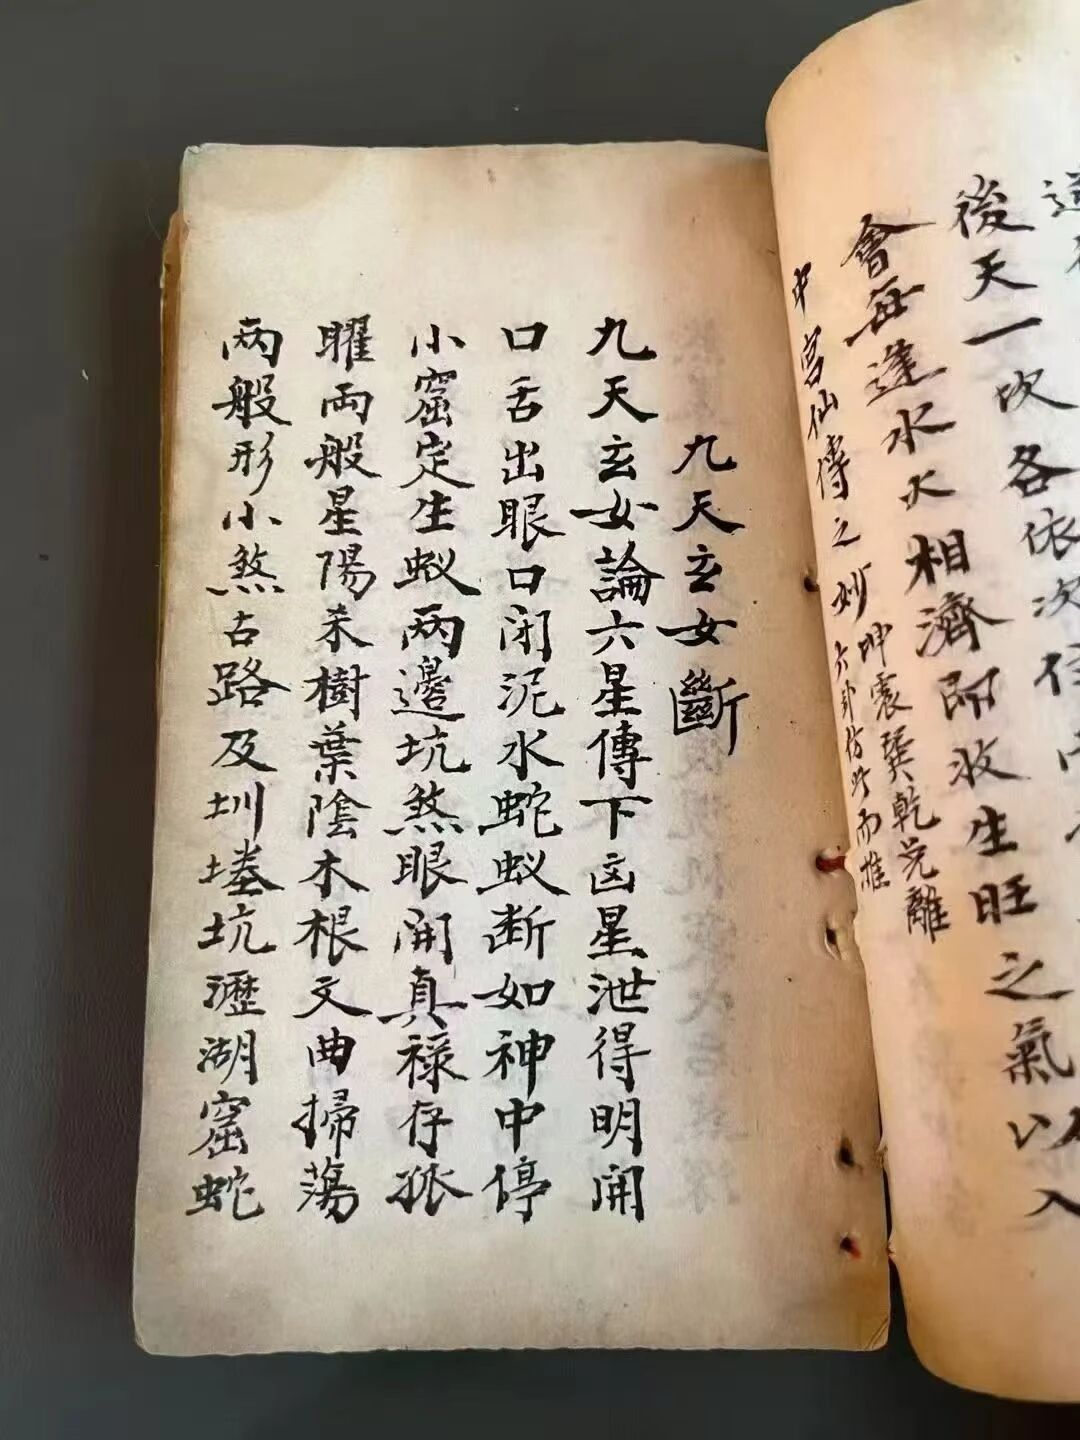 後天一坎各依次住
會每逢水火相濟即收生旺之氣以入
中宮仙傳之妙坤震巽乾兌離
六卦仿此而推
九天玄女斷
九天玄女論六星傳下凶星泄得明開
口舌出眼口闭泥水蛇蚁断如神中停
小窟定生蚁两邉坑煞眼開真禄存孤
曜両般星陽未樹葉陰木根文曲掃蕩
两般形小煞古路及圳塂坑瀝湖窟蛇